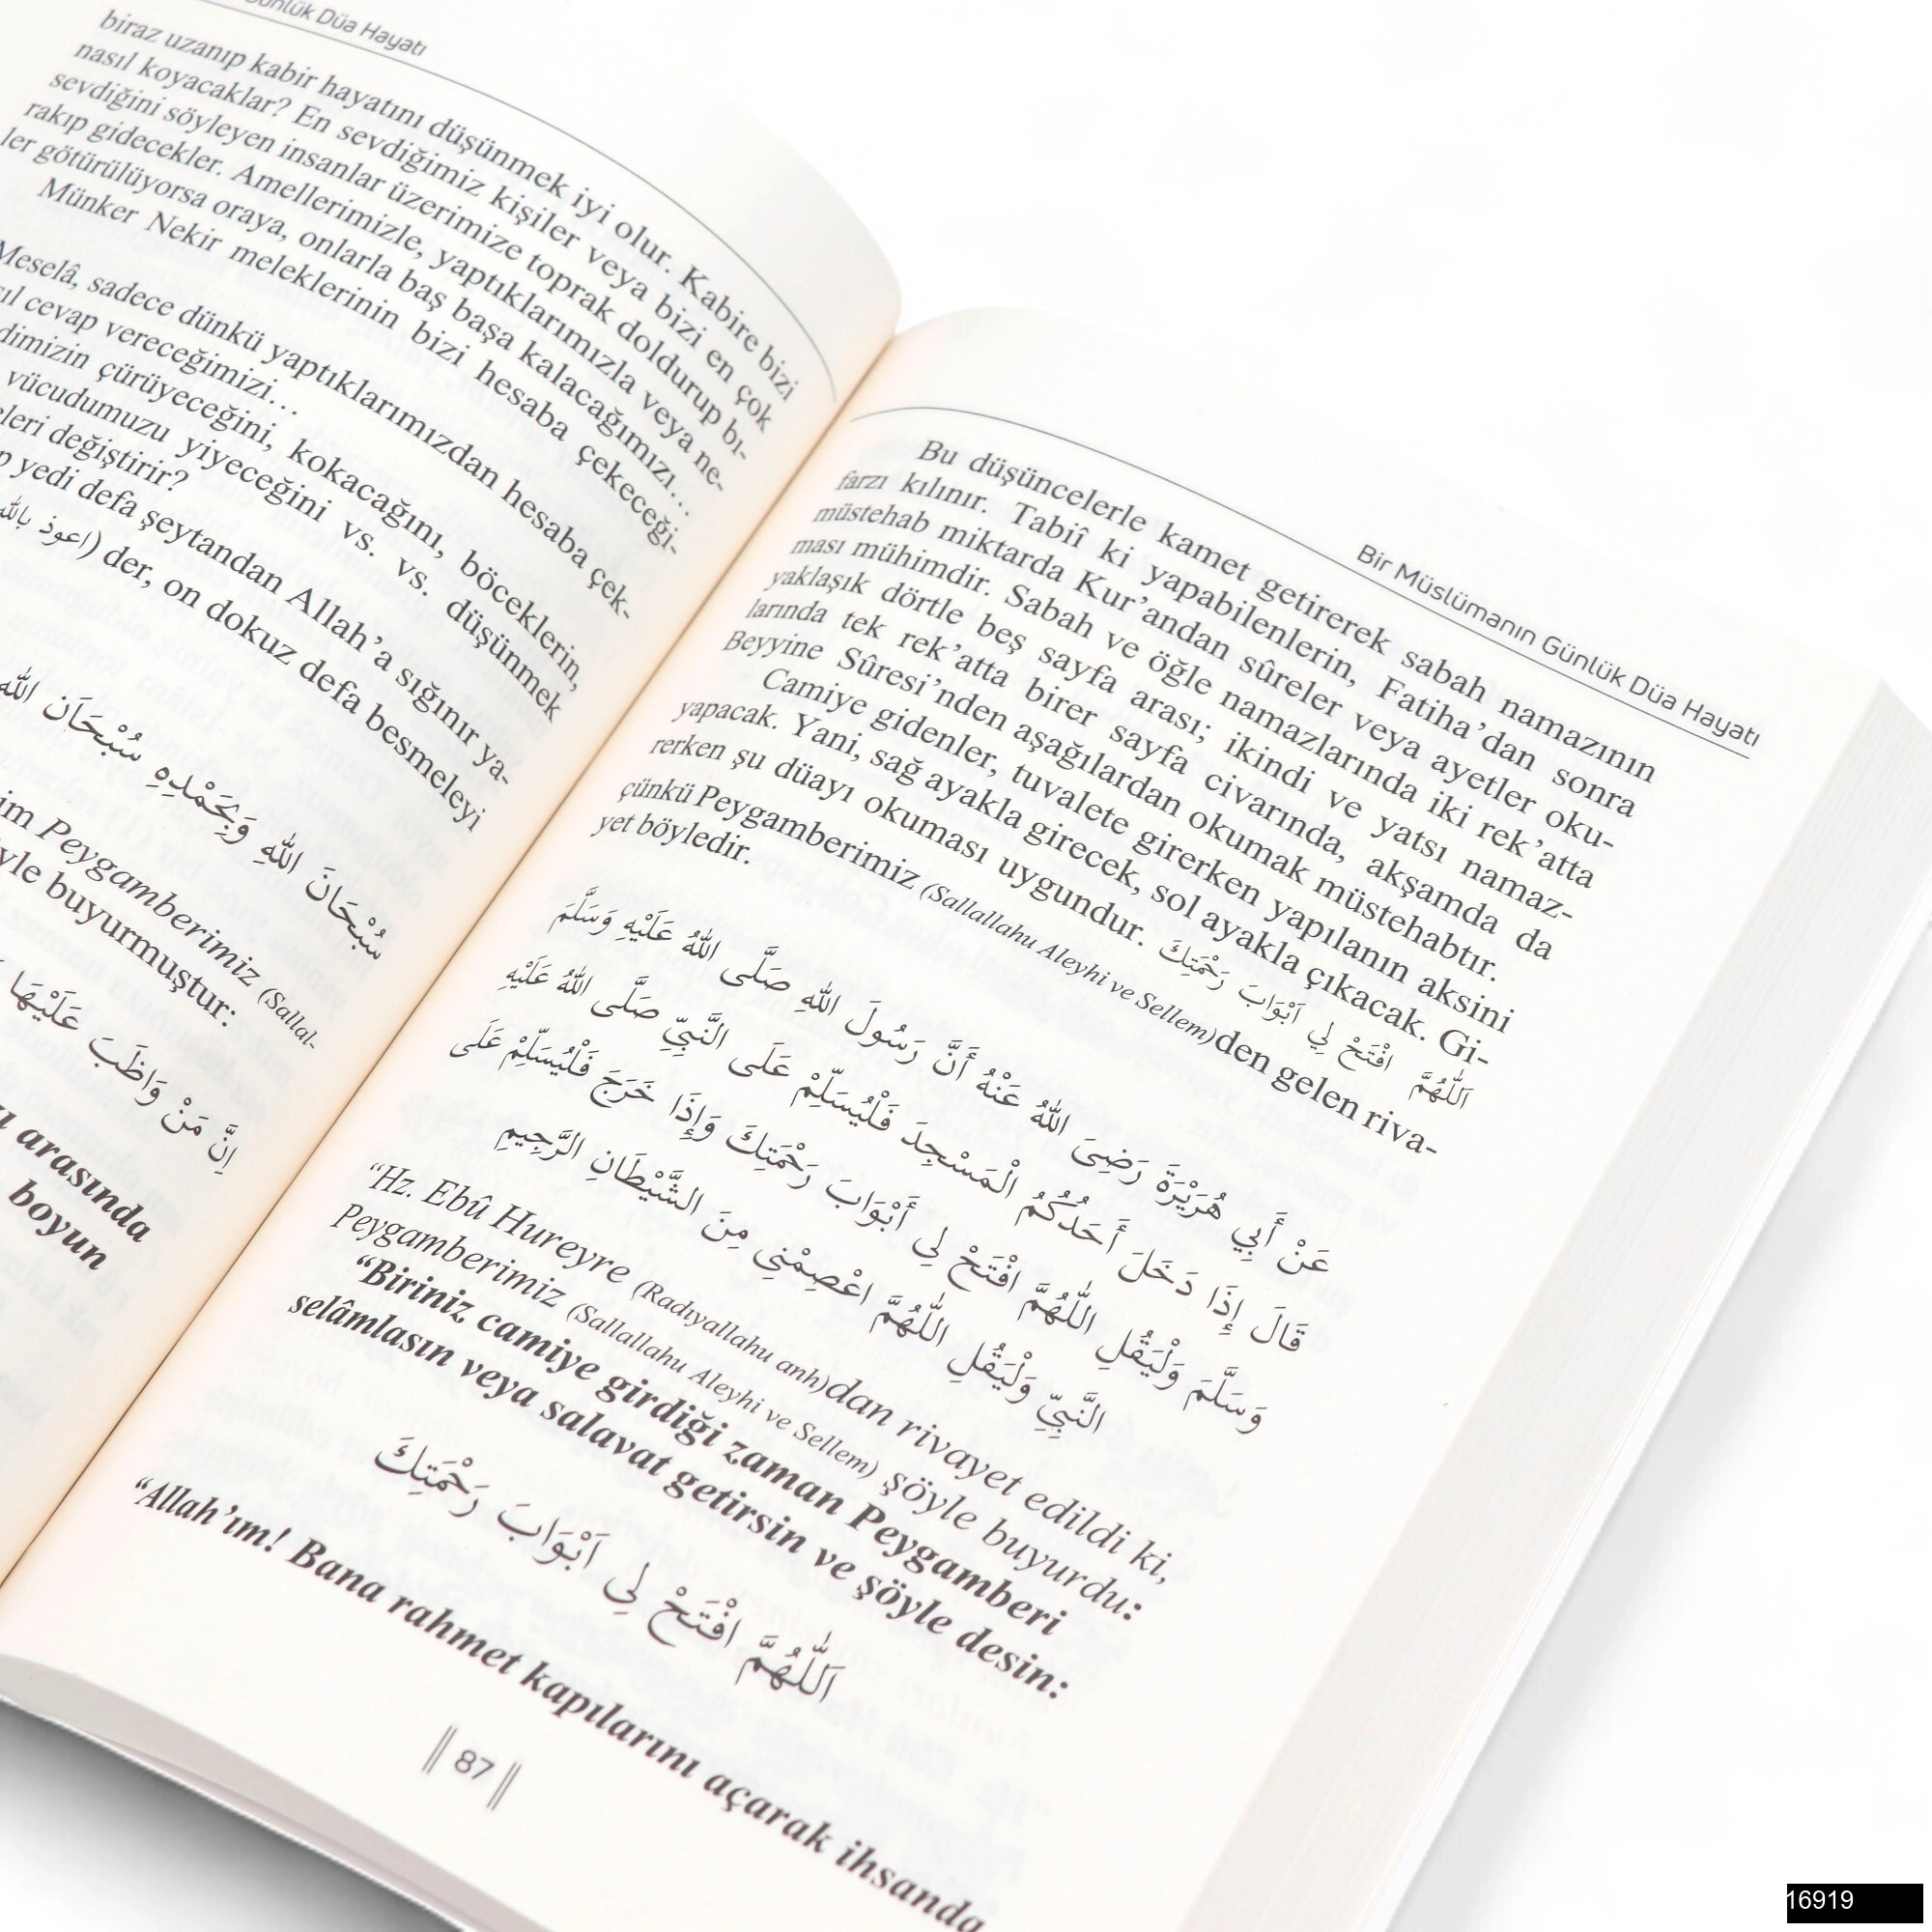 Günlük Düa Hayatı
biraz uzanıp kabir hayatını düşünmek iyi olur. Kabire bizi
nasıl koyacaklar? En sevdiğimiz kişiler veya bizi en çok
sevdiğini söyleyen insanlar üzerimize toprak doldurup bı-
rakıp gidecekler. Amellerimizle, yaptıklarımızla veya ne-
ler götürülüyorsa oraya, onlarla baş başa kalacağımızı...
Münker Nekir meleklerinin bizi hesaba çekeceği-
Meselâ, sadece dünkü yaptıklarımızdan hesaba çek-
cevap vereceğimizi...
çürüyeceğini, kokacağını, böceklerin,
vücudumuzu yiyeceğini vs. vs. düşünmek
değiştirir?
yedi defa şeytandan Allah'a sığınır ya-
(اعوذ بالله) der, on dokuz defa besmeleyi
سُبْحَانَ اللهِ وَبِحَمْدِهِ سُبْحَانَ اللهِ
Peygamberimiz (Sallal-
buyurmuştur:
اِنَّ مَنْ وَاظَبَ عَلَيْهَا
arasında
boyun
Bir Müslümanın Günlük Düa Hayatı
Bu düşüncelerle kamet getirerek sabah namazının
farzı kılınır. Tabiî ki yapabilenlerin, Fatiha'dan sonra
müstehab miktarda Kur'andan sûreler veya ayetler oku-
ması mühimdir. Sabah ve öğle namazlarında iki rek'atta
yaklaşık dörtle beş sayfa arası; ikindi ve yatsı namaz-
larında tek rek'atta birer sayfa civarında, akşamda da
Beyyine Sûresi'nden aşağılardan okumak müstehabtır.
Camiye gidenler, tuvalete girerken yapılanın aksini
yapacak. Yani, sağ ayakla girecek, sol ayakla çıkacak. Gi-
rerken şu düayı okuması uygundur. اَللّٰهُمَّ افْتَحْ لِي اَبْوَابَ رَحْمَتِكَ
çünkü Peygamberimiz (Sallallahu Aleyhi ve Sellem)den gelen riva-
yet böyledir.
عَنْ أَبِي هُرَيْرَةَ رَضِىَ اللهُ عَنْهُ أَنَّ رَسُولَ اللهِ صَلَّى اللهُ عَلَيْهِ وَسَلَّمَ
قَالَ إِذَا دَخَلَ أَحَدُكُمُ الْمَسْجِدَ فَلْيُسَلِّمْ عَلَى النَّبِيِّ صَلَّى اللهُ عَلَيْهِ
وَسَلَّمَ وَلْيَقُلِ اللّٰهُمَّ افْتَحْ لِي أَبْوَابَ رَحْمَتِكَ وَإِذَا خَرَجَ فَلْيُسَلِّمْ عَلَى
النَّبِيِّ وَلْيَقُلِ اللّٰهُمَّ اعْصِمْنِي مِنَ الشَّيْطَانِ الرَّجِيمِ
“Hz. Ebû Hureyre (Radıyallahu anh)dan rivayet edildi ki,
Peygamberimiz (Sallallahu Aleyhi ve Sellem) şöyle buyurdu:
“Biriniz camiye girdiği zaman Peygamberi
selâmlasın veya salavat getirsin ve şöyle desin:
اَللّٰهُمَّ افْتَحْ لِي اَبْوَابَ رَحْمَتِكَ
“Allah'ım! Bana rahmet kapılarını açarak ihsanda
87
16919